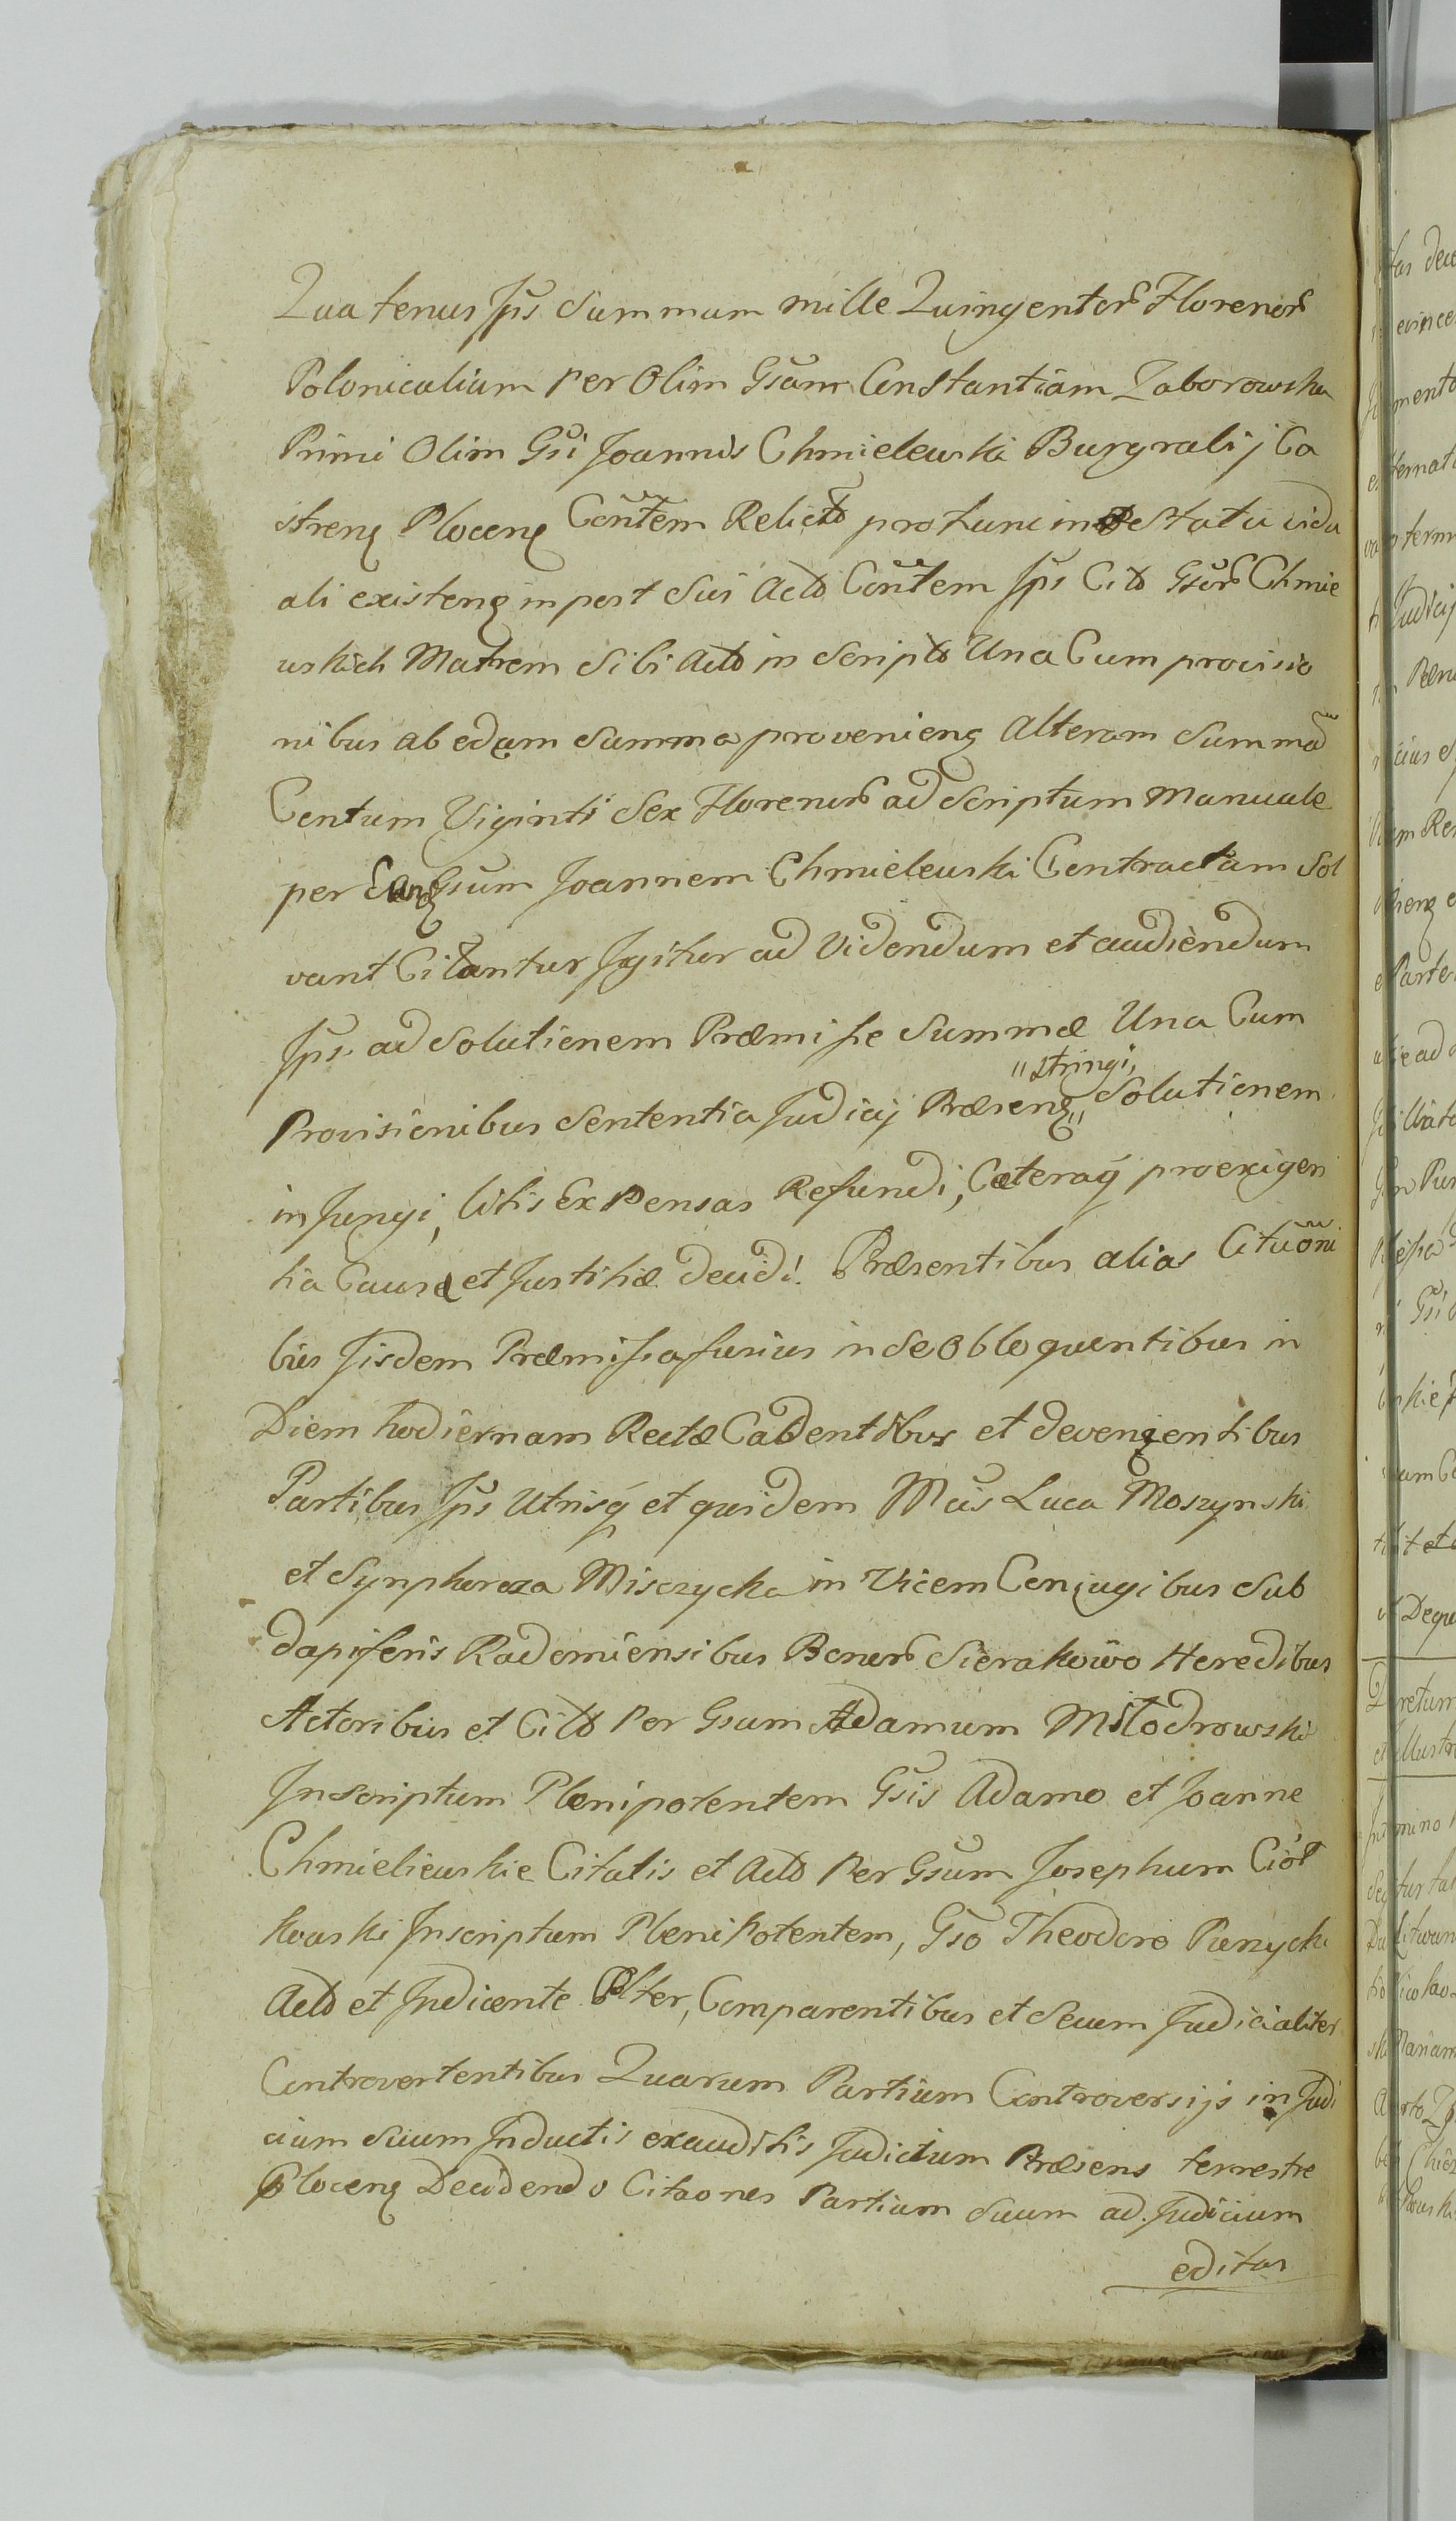 Quatenus Ips Summam mille Quingentor Florenor
Polonicalium per Olim Gsam Constantiam Zaborowska
Primi Olim Gsi Joannis Chmielewski Burgrabij Ca
streng Ploceng Contem Relicto pro tunc in Statu vidu
ali existeng in post Sui Acto Contem Ips Cito Gsor Chmie
wskich Matrem Sibi Acto in Scripto Una Cum provisio
nibus ab eadam Summa provenieng Alteram Summa
Centum Viginti Sex Florenor ad Scriptum Manuale
per Eang Gsum Joannem Chmielewski Contractam Sol
vant Citantur Igitur ad Videndum et audiendum
Ips ad Solutionem Præmisse Summæ Una Cum
Provisionibus Sententia Judicij Præseng "stringi," Solutionem
injungi, litis Expensas Refundi, Cæteraq pro exigen
tia Causæ et Justitiæ decidi. Præsentibus alias Cituoni
bus Iisdem Præmissa fusius in Se Obloquentibus in
Diem hodiernam Rectæ Cadentibus et devenientibus
Partibus Ips Utrisq et quidem Mcis Luca Moszynski
et Synphoroza Misczycka in Vicem Conjugibus Sub
dapiferis Radomiensibus Bonor Sierakowo Heredibus
Actoribus et Cito Per Gsum Adamum Młodrowski
Inscriptum Plenipotentem Gsis Adamo et Joanne
Chmieliewskie Citatis et Acto Per Gsum Josephum Cioł
kowski Inscriptum Plenipotentem, Gso Theodoro Pienycki
Acto et Indicente Plter, Comparentibus et Secum Judicialiter
Controvertentibus Quarum Partium Controversijs in Judi
cium Suum Inductis exauditis Judicium Præsens terrestre
Ploceng Decidendo Citaones Partium Suum ad Judicium
editas